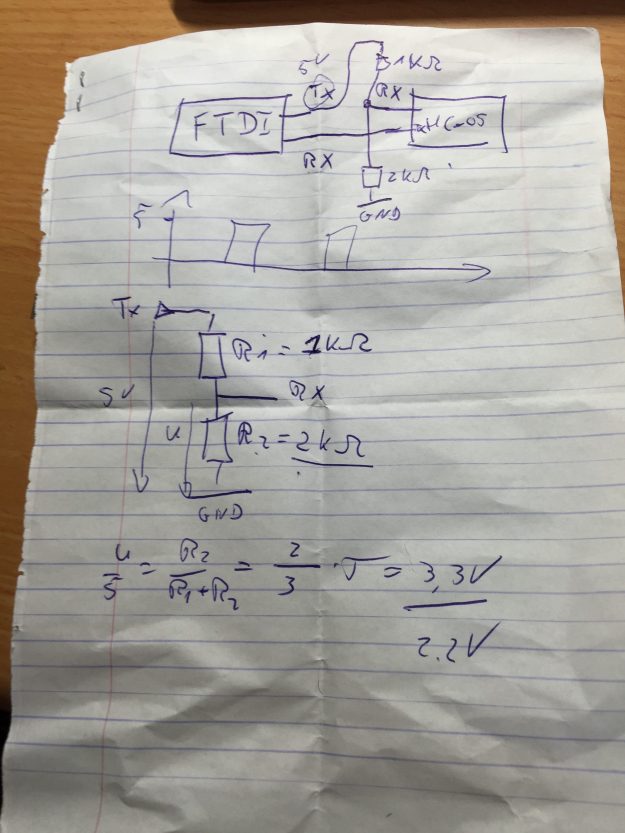 5V 1KΩ
Tx RX
FTDI HC-05
RX 2KΩ
GND
5
Tx
R1 = 1KΩ
5V RX
U R2 = 2KΩ
GND
U/5 = R2/(R1+R2) = 2/3 · 5 = 3,3V
2.2V